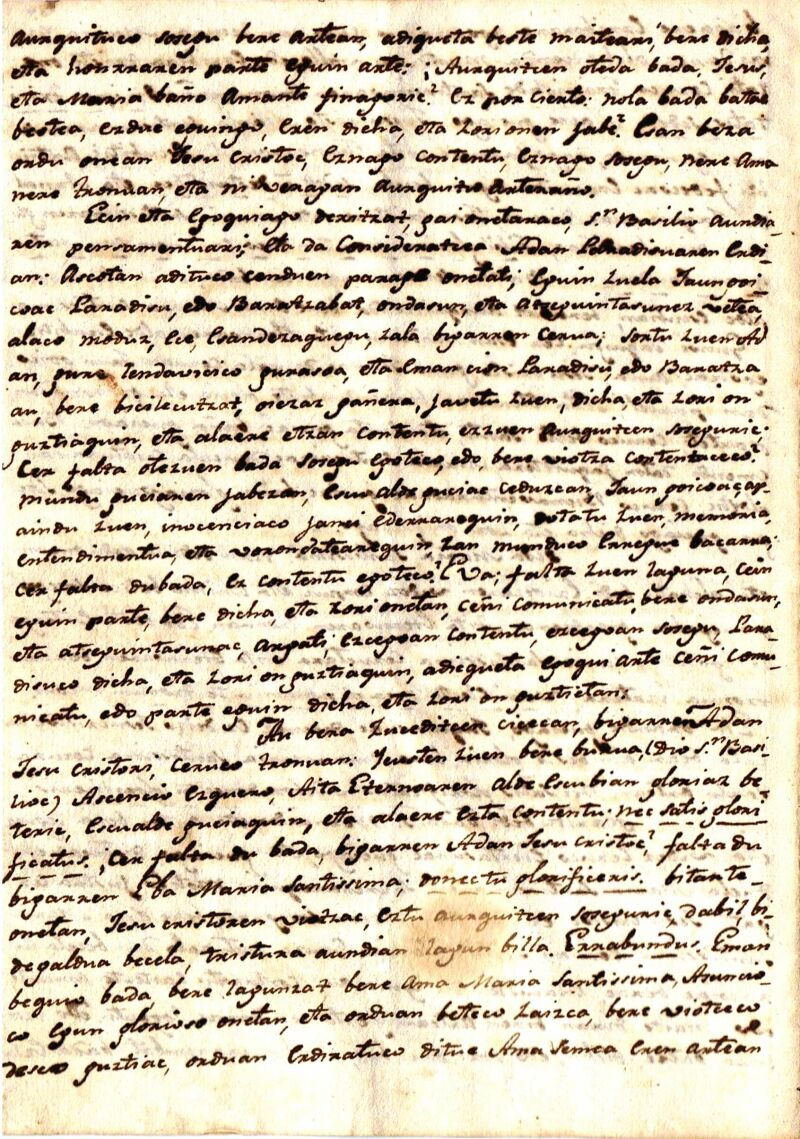 Aurquituco sosegu bere artean, adiqueta beste maiteari, bere dicha,
eta honrraren parte eguin arte: ¡Aurquitcen oteda bada, Jesus,
eta Maria baño Amante finagoric? Ez por cierto: nola bada batac
bestea, ezdue eguingo, eren dicha, eta zorionen jabe? Esan beza
ordu onean Jesu Cristoc, Eznago contentu, Eznago sosegu, nere Ama
nere tronuan, eta ni veragan Aurquitu Arteraño.
Ecin eta Egoquiago deritzat, gai onetaraco, S.n Basilio Aundia
ren pensamentuari; Eta da Consideratcea Adan Paradisuaren Erdi-
an: Ascotan adituco cenduen parage onetati, Eguin zuela Jaungoi-
coac Paradisu, edo Baratzabat, ondasun, eta atseguintasunez betea,
alaco moduz, Ece, Esandezaguegu, zala bigarren cerua; sortu zuen Ad
an, gure lendavicico gurasoa, eta Eman cion Paradisu, edo Baratza
au, bere bicilecutzat, oiezaz gañera, javetu zuen, dicha, eta zori on
guztiaquin, eta alaere etzan contentu, ezzuen Aurquitcen soseguric;
Cer falta otezuen bada sosegu Egoteco, edo, bere viotza contentaceco?
mundu guciaren jabezan, Escu alde guciac ceduzcan, Jaun goicoac, ap-
aindu zuen, inocenciaco janci Ederrarequin, dotatu zuen, memoria,
entendimentua, eta vorondatearequin, zan munduco Erregue bacarra;
cer falta dubada, ez contentu egoteco? Eva; falta zuen laguna, cein
eguin parte, bere dicha, eta zorionetan, ceñi comunicatu, bere ondasun,
eta atseguintasunac, argati, ezcegoan contentu, ezcegoan sosegu, Para-
disuco dicha, eta zori on guztiaquin, adiequeta Egoqui Arte ceñi comu-
nicatu, edo parte eguin dicha, eta zori on guztietan.
Au bera zuceditcen citcecan, bigarren Adan
Jesu cristori, ceruco tronuan: Jeusten zuen bere burua, (dio S.n Basi-
lioc) Ascencio Ezquero, Aita Eternoaren Alde Escubian gloriaz be-
teric, Escualde guciaquin, eta alaere Ezta contentu; nec satis glori-
ficatus. ¿Cer falta du bada, bigarren Adan Jesu cristoc? falta du
bigarren Eba Maria Santissima; donec tu glorificeris. bitarte-
onetan, Jesu cristoren viotzac, Eztu Aurquitcen soseguric, dabil bi-
de galdua becela, tristura aundian lagun billa. Errabundus. Eman
beguio bada, bere lagunzat bere Ama Maria Santissima, Asuncio-
co Egun glorioso onetan, eta orduan beteco zaizca, bere viotceco
deseo guztiac, orduan Erdiratuco ditue Ama Semea Eren Artean